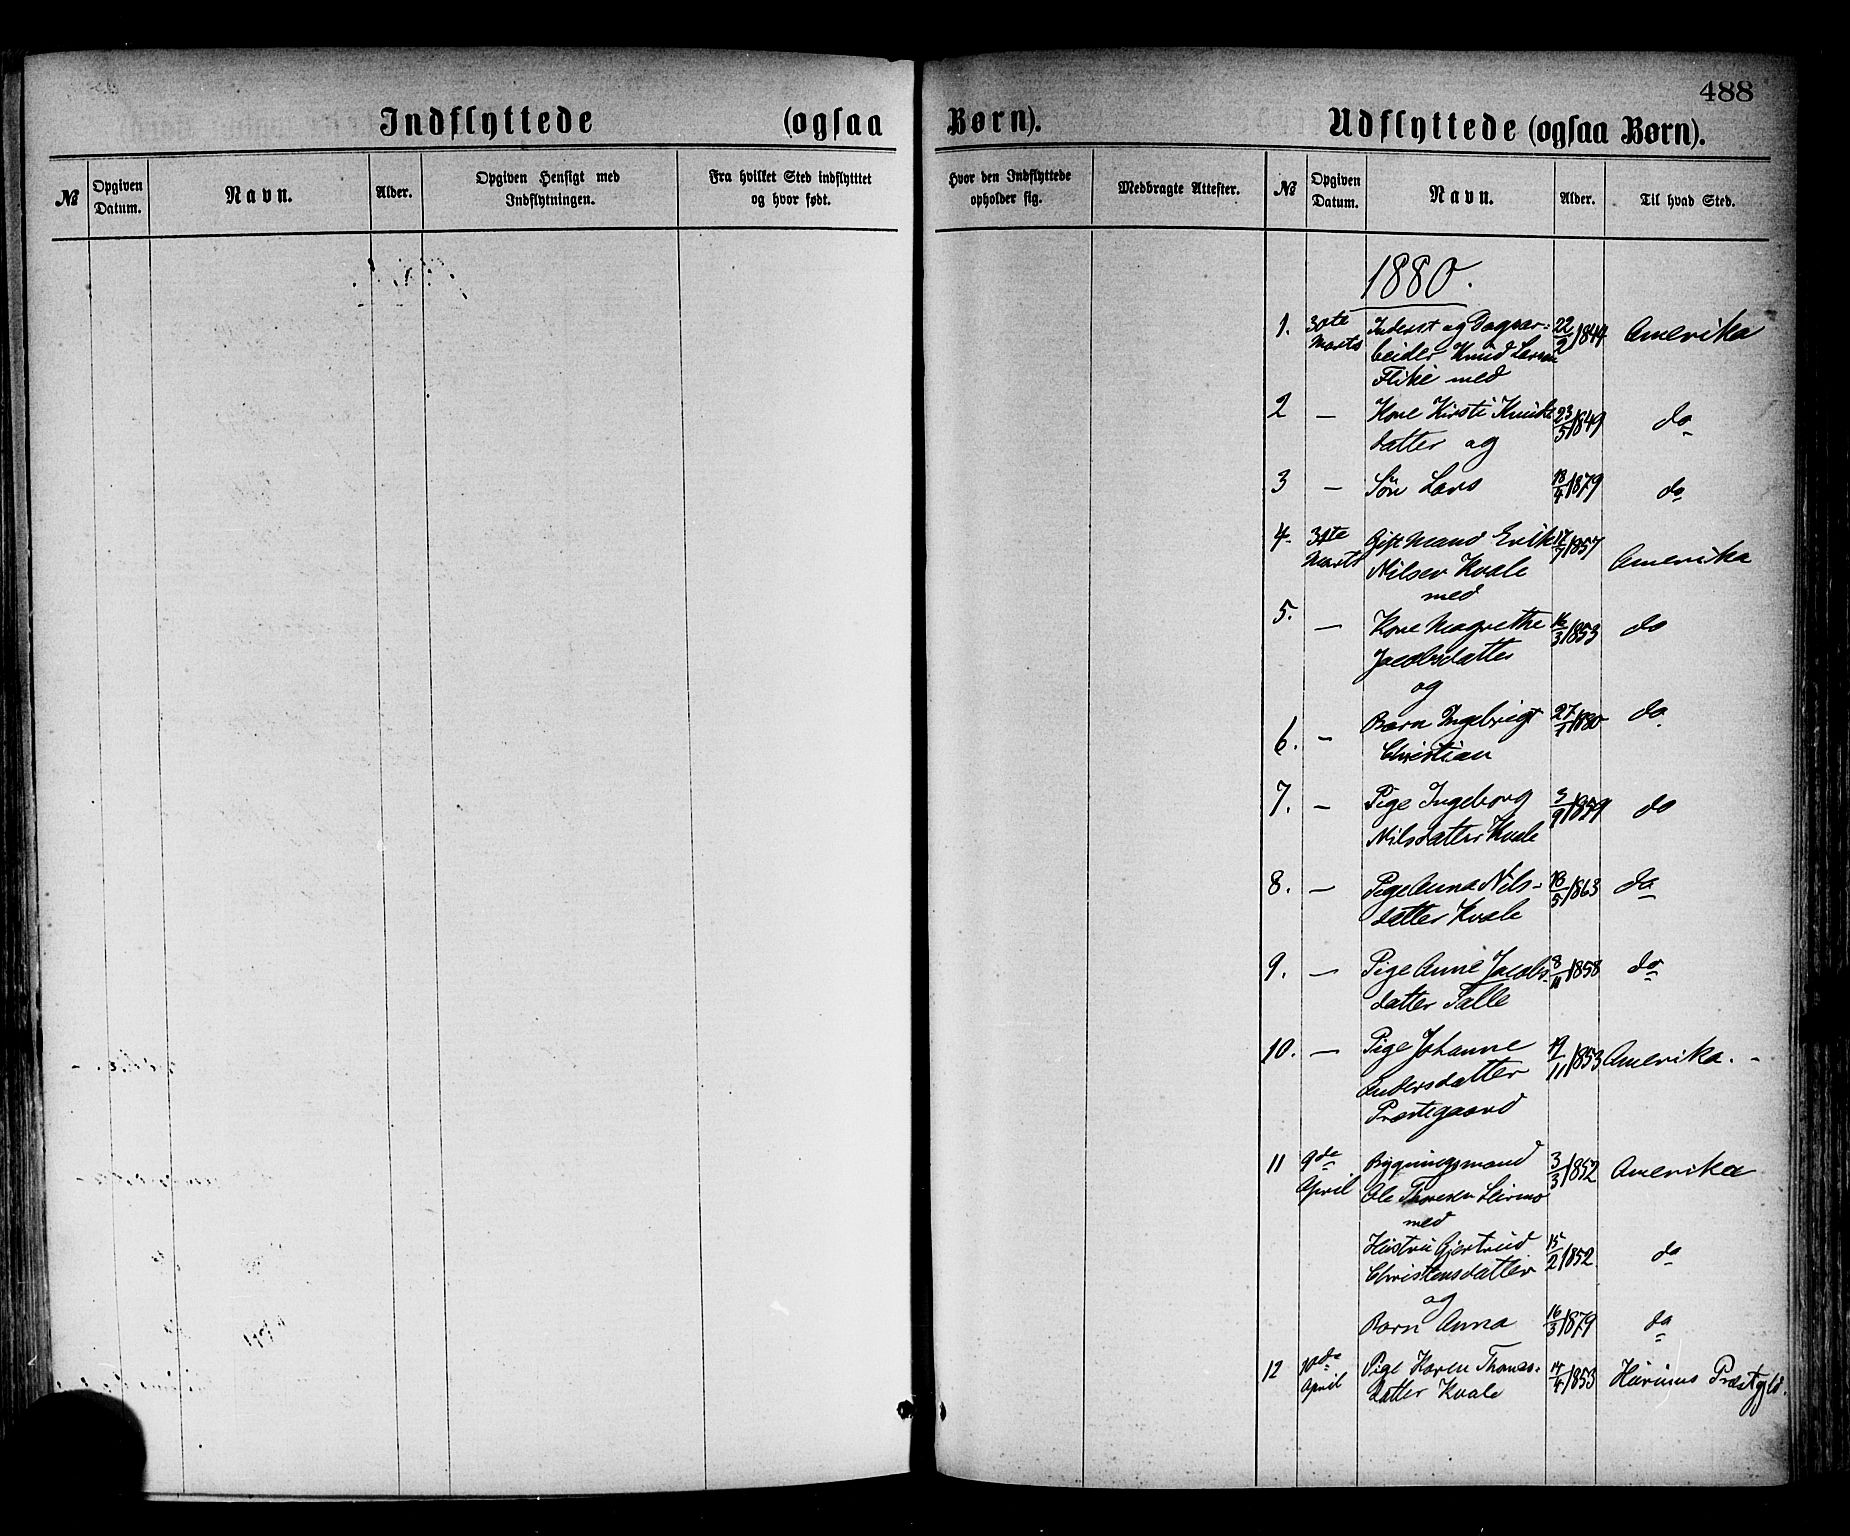 488
Indflyttede (ogsaa Børn).
Udflyttede (ogsaa Børn).
№ Opgiven Datum. Navn. Alder. Opgiven Hensigt med Indflytningen. Fra hvilket Sted indflyttet og hvor født. Hvor den Indflyttede opholder sig. Medbragte Attester. № Opgiven Datum. Navn. Alder. Til hvad Sted.
1880.
1. Inderst og Dagsar- 22/2 1844 Amerika
Marts beider Knud Larsen
Flikie med
2 — Kone Kirsti Knuds 23/5 1849 do
datter og
3 — Søn Lars 18/4 1879 do
4. 31te Gift Mand Erik 1857 Amerika
Marts Nilsen Kvale
med
5. — Kone Magrethe 16/3 1853 do
Jacobsdatter
og
6. — Barn Ingebrigt 27/1 1880 do
Christian
7. — Pige Ingeborg 3/9 1859 do
Nilsdatter Kvale
8. — Pige Anna Nils- 18/5 1863 do
datter Kvale
9. — Pige Anne Jacobs- 8/11 1858 do
datter Talle
10. — Pige Johanne 19/11 1853 Amerika.
Andersdatter
Præstegaard
11 9de Bygningsmand 3/3 1852 Amerika
April Ole Thoresen
med
Hustru Gjertrud 15/2 1852 do
Christensdatter
og
Barn Anna 16/3 1879 do
12 10de Pige Karen Thomas- 14/4 1853 Præstgjld.
April datter Kvale